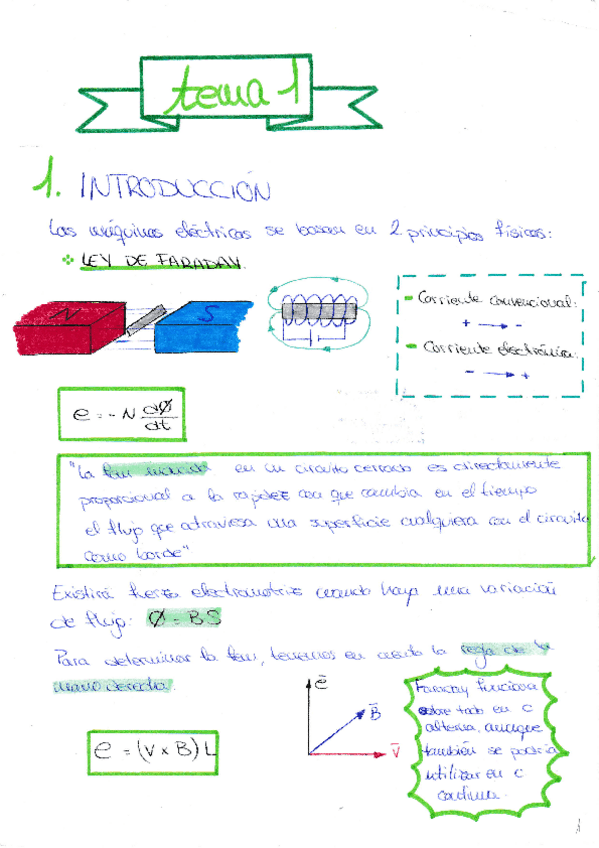 tema 1
1. INTRODUCCIÓN
Las máquinas eléctricas se basan en 2 principios físicos:
LEY DE FARADAY
N
S
- Corriente convencional:
+ → -
- Corriente electrónica:
- → +
e = - N dØ/dt
"La fem inducida en un circuito cerrado es directamente
proporcional a la rapidez con que cambia en el tiempo
el flujo que atraviesa una superficie cualquiera con el circuito
como borde"
Existirá fuerza electromotriz cuando haya una variación
de flujo: Ø = BS
Para determinar la fem, tenemos en cuenta la regla de la
mano derecha.
e = (V x B) L
e
B
V
Faraday funciona
sobre todo en c
alterna, aunque
también se podría
utilizar en c
continua.
1